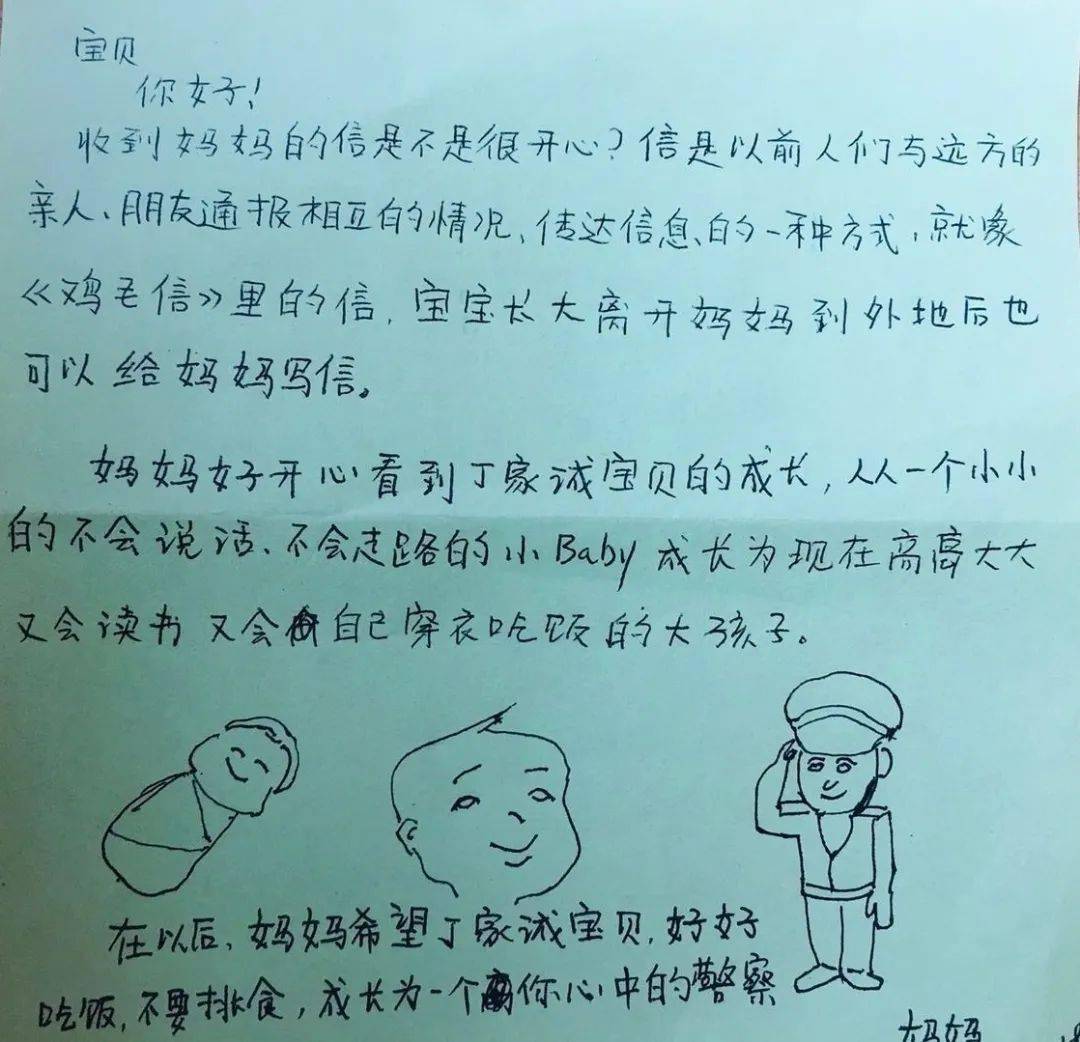 宝贝
你好!
收到妈妈的信是不是很开心?信是以前人们与远方的
亲人、朋友通报相互的情况、传达信息的一种方式,就像
《鸡毛信》里的信,宝宝长大离开妈妈到外地后也
可以给妈妈写信。
妈妈好开心看到丁家诚宝贝的成长,从一个小小
的不会说话、不会走路的小Baby成长为现在高高大大
又会读书又会自己穿衣吃饭的大孩子。
在以后、妈妈希望丁家诚宝贝,好好
吃饭,不要挑食,成长为一个你心中的警察
妈妈